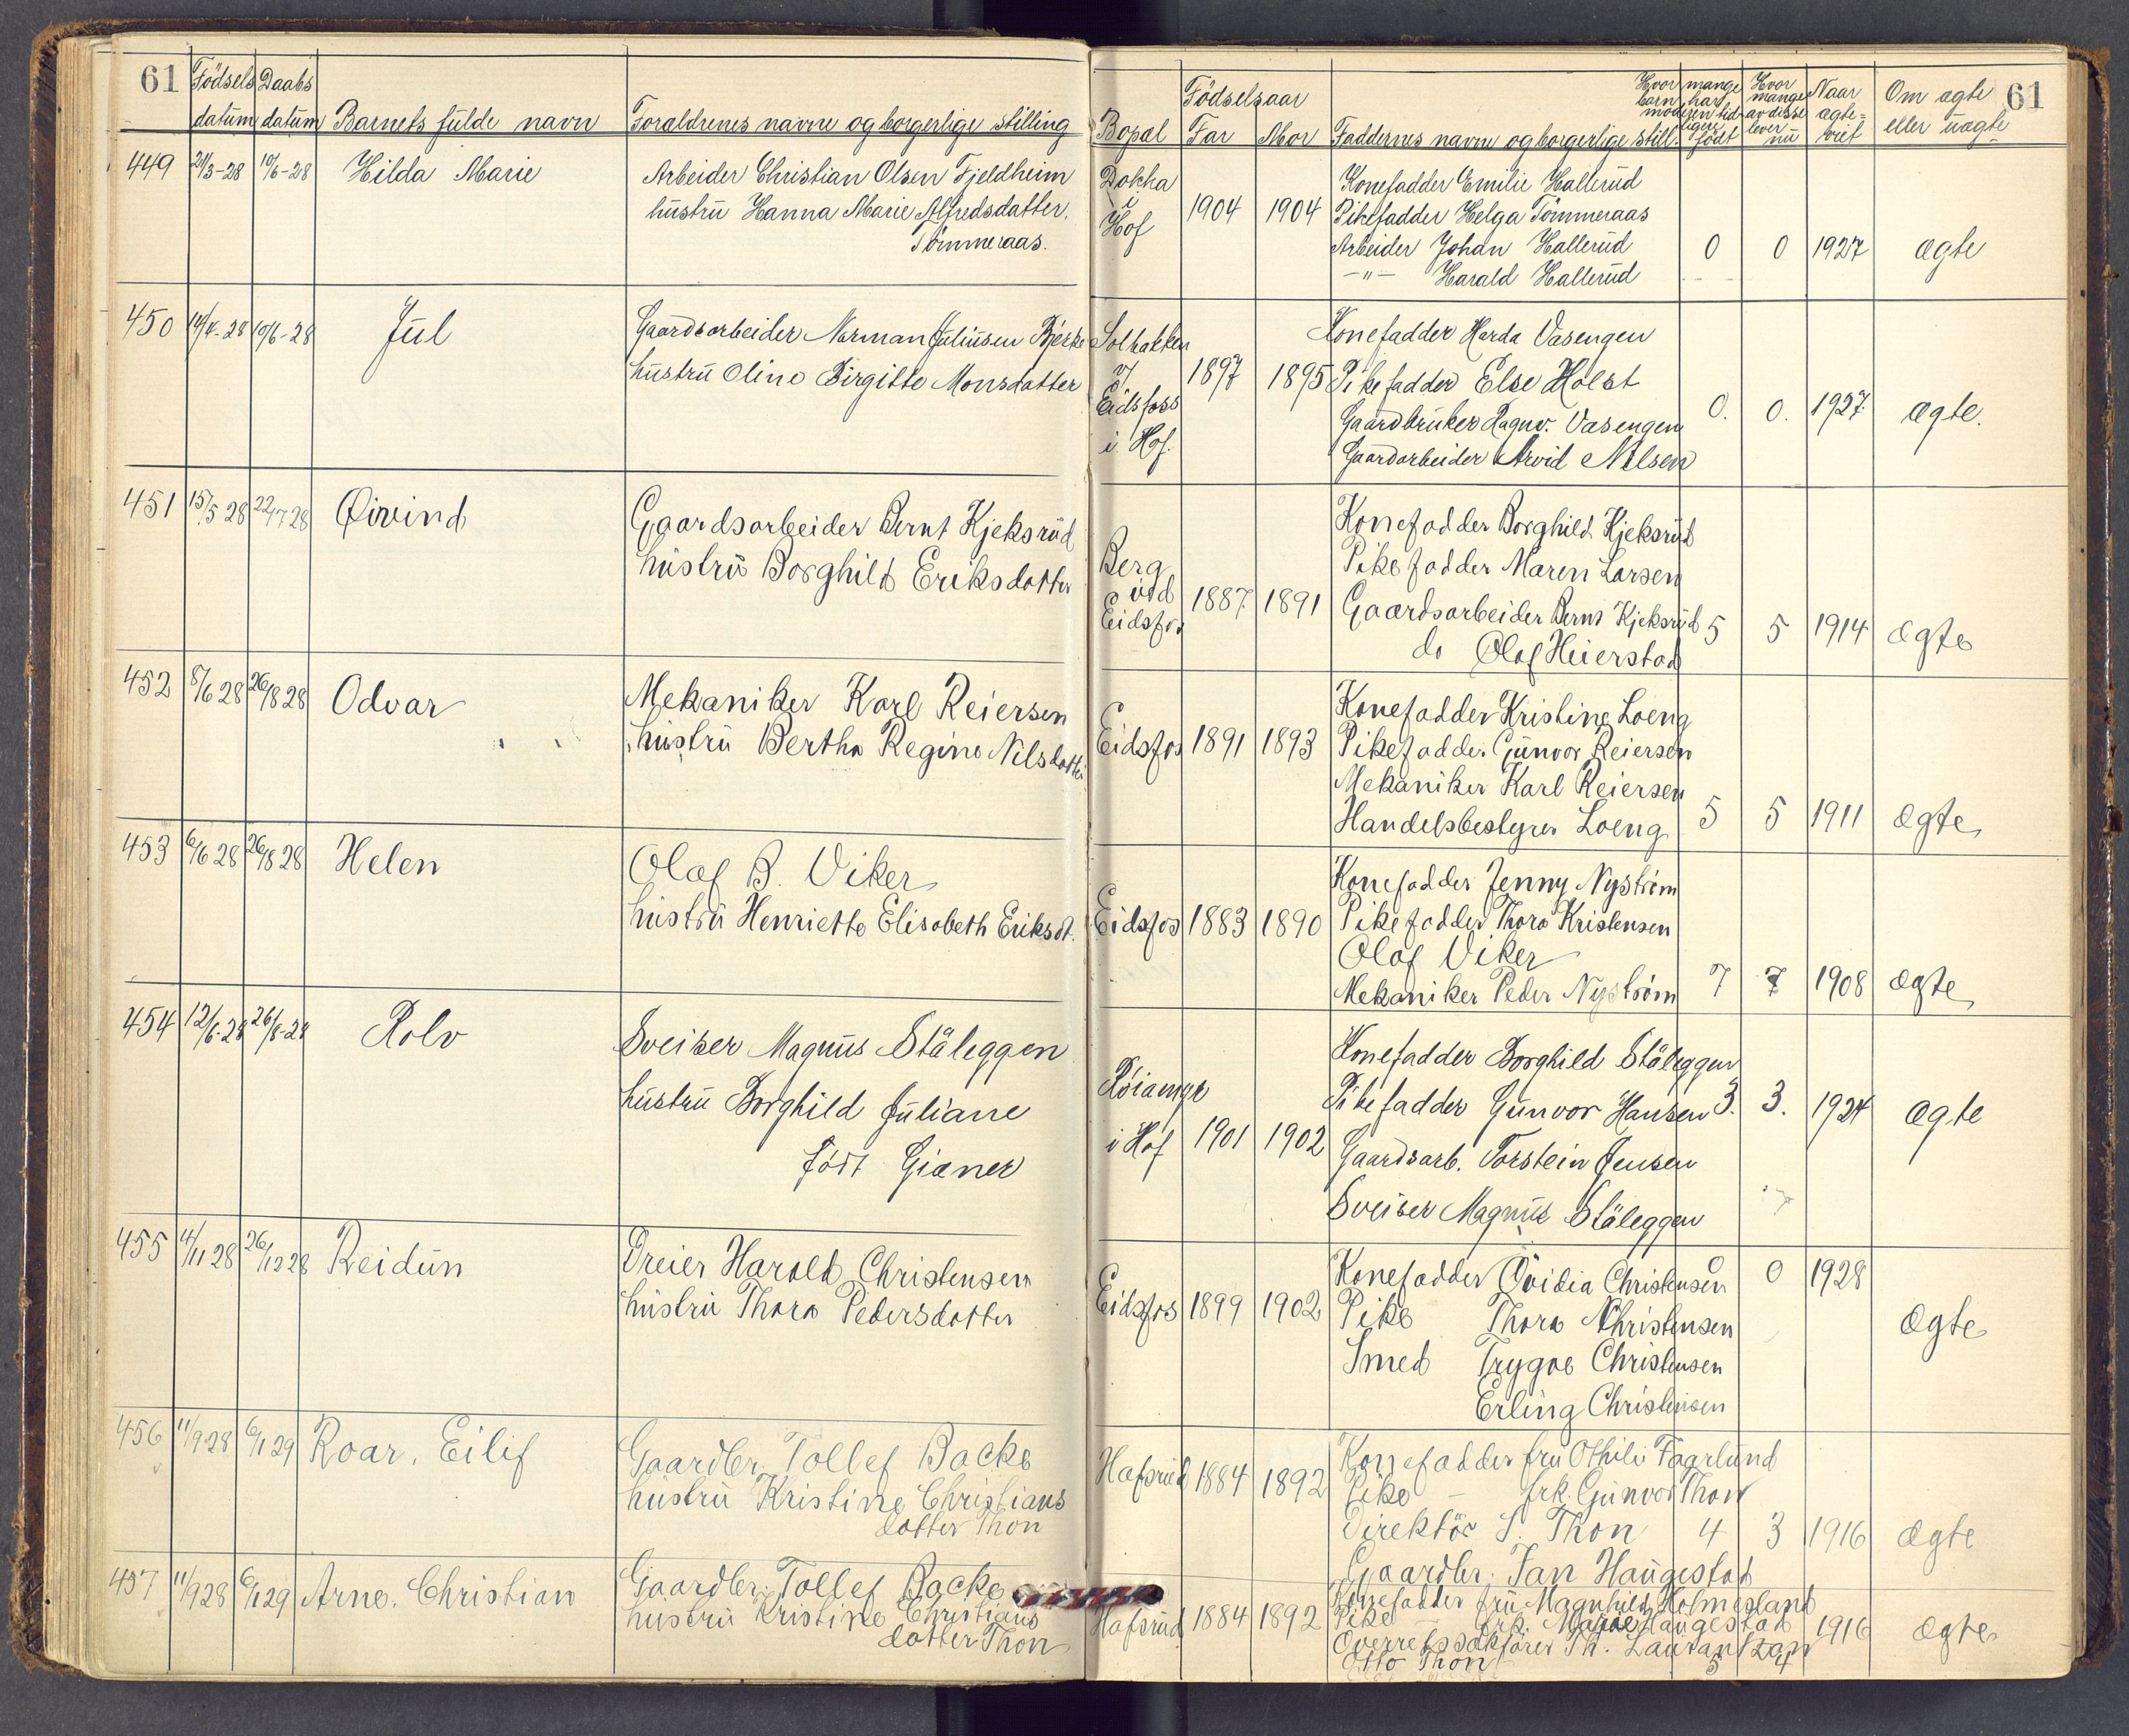 61
Födsels datum
Daabs datum
Barnets fulde navn
Foraldrenes navne og borgerlige stilling
Bopæl
Födselsaar
Far
Mor
Faddernes navne og borgerlige still.
Hvor mange barn har moderen tidligere födt
Hvor mange av disse lever nu
Naar ægteviet
Om ægte eller uægte
61
449
21/3-28
10/6-28
Hilda Marie
Arbeider Christian Olsen Fjeldheim
hustru Hanna Marie Alfredsdatter
Tömmeraas.
Dokka
i
Hof
1904
1904
Konefadder Emilie Hallerud
Pikefadder Helga Tömmeraas
Arbeider Johan Hallerud
—"— Harald Hallerud
0
0
1927
ægte
450
14/4-28
10/6-28
Jul
Gaardsarbeider Norman Juliusen Bjerke
hustru Oline Birgitte Monsdatter
Solbakken
v/
Eidsfoss
i Hof.
1897
1895
Konefadder Harda Vasengen
Pikefadder Else Holst
Gaardbruker Ragnv. Vasengen
Gaardarbeider Arvid Nilsen
0.
0.
1927
ægte.
451
15/5 28
22/7 28
Øivind
Gaardsarbeider Bernt Kjeksrud
hustru Borghild Eriksdatter
Berg
ved
Eidsfos
1887
1891
Konefadder Borghild Kjeksrud
Pikefadder Maren Larsen
Gaardsarbeider Bernt Kjeksrud
do Olaf Heierstad
5
5
1914
ægte
452
8/6 28
26/8 28
Odvar
Mekaniker Karl Reiersen
hustru Bertha Regine Nilsdatter
Eidsfos
1891
1893
Konefadder Kristine Loeng
Pikefadder Gunvor Reiersen
Mekaniker Karl Reiersen
Handelsbestyrer Loeng
5
5
1911
ægte
453
6/6 28
26/8 28
Helen
Olaf B. Viker
hustru Henriette Elisabeth Eriksdt.
Eidsfos
1883
1890
Konefadder Jenny Nyström
Pikefadder Thora Kristensen
Olaf Viker
Mekaniker Peder Nyström
7
7
1908
ægte
454
12/6-28
26/8-28
Rolv
Sveiser Magnus Ståleggen
hustru Borghild Juliane
född Gianer
i Hof
1901
1902
Konefadder Borghild Ståleggen
Pikefadder Gunvor Hansen
Gaardsarb. Torstein Jensen
Sveiser Magnus Ståleggen
3.
3.
1924
ægte
455
4/11 28
26/12 28
Reidun
Dreier Harald Christensen
hustru Thora Pedersdatter
Eidsfos
1899
1902
Konefadder Ovidia Christensen
Pike Thora Christensen
Smed Trygve Christensen
Erling Christensen
0
0
1928
ægte
456
11/9 28
6/1 29
Roar. Eilif
Gaardbr. Tollef Backe
hustru Kristine Christians
datter Thon
Hafsrud
1884
1892
Konefadder fru Othilie Fagerlund
Pike — frk. Gunvor Thon
Direktör S. Thon
Gaardbr. Jan Haugestad
4
3
1916
ægte
457
11/9 28
6/1 29
Arne. Christian
Gaardbr. Tollef Backe
hustru Kristine Christians
datter Thon
Hafsrud
1884
1892
Konefadder fru Magnhild Holmesland
Pike — frk. Marie Haugestad
Overretssakförer Th. Lauran
Otto Thon
5
4
1916
ægte